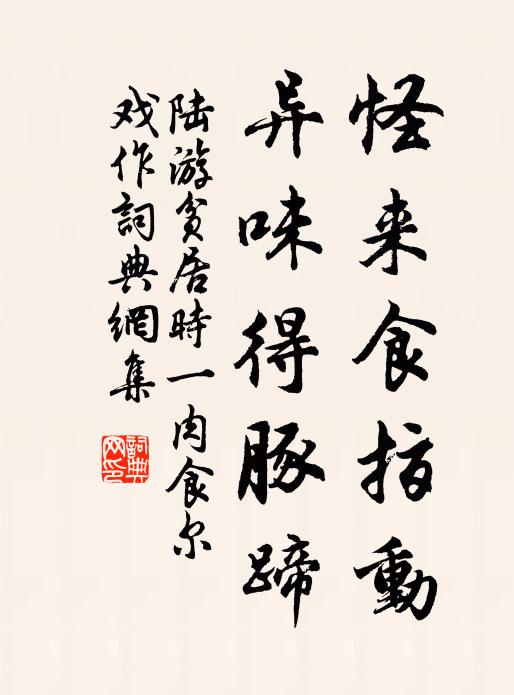 怪来食指動
异味得豚蹄
陆游貧居時一肉食尔
戏作詞典網集
詞典网印